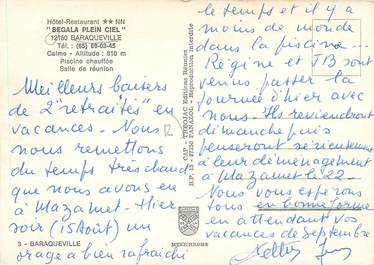 Hôtel-Restaurant ★★ NN
"SEGALA PLEIN CIEL"
12160 BARAQUEVILLE
Tél. : (65) 69-03-45
Calme - Altitude : 810 m
Piscine chauffée
Salle de réunion
Meilleurs baisers
de 2 "retraités" en
vacances. Nous
nous remettons
du temps très chaud
que nous avons eu
à Mazamet. Hier
soir (15 Août) un
3 - BARAQUEVILLE
orage a bien rafraîchi
12
CAP - THEOJAC Editions Réunies
B.P. 12 - 87350 PANAZOL - Reproduction interdite
MEXICHROME
le temps et il y a
moins de monde
dans la piscine.
Régine et JB sont
venus passer la
journée d'hier avec
nous. Ils reviendront
dimanche puis
penseront sérieusement
à leur déménagement
à Mazamet le 22.
Nous vous espérons
tous en bonne forme
en attendant vos
vacances de Septembre